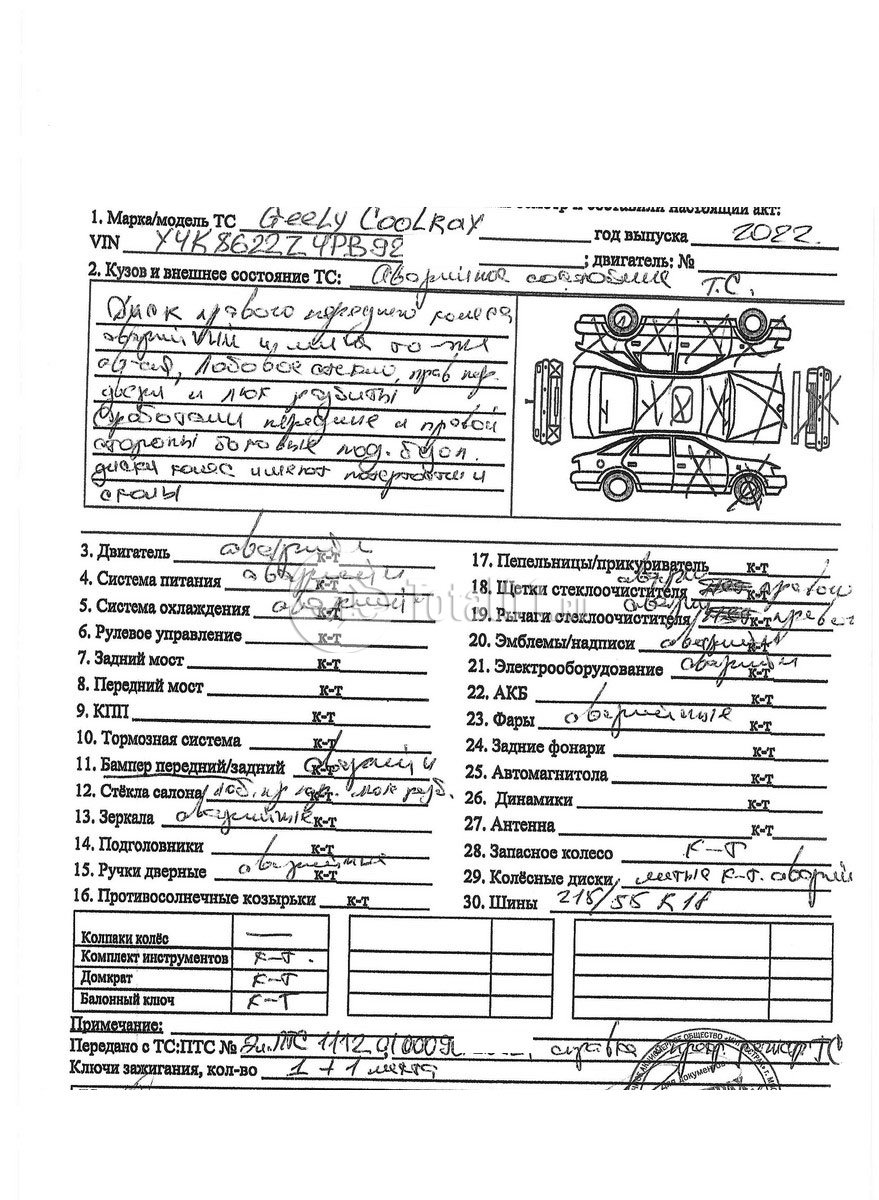 настоящий акт:
1. Марка/модель ТС Geely Coolray год выпуска 2022.
VIN X4K8622Z4PB92 ; двигатель: №
2. Кузов и внешнее состояние ТС: Аварийное состояние Т.С.
Диск правого переднего колеса
Лобовое стекло, прав пер.
и люк разбиты
Сработали передние и правой
стороны боковые под. безоп.
диски колес имеют потертости и
сколы
3. Двигатель аварий к-т
4. Система питания аварий к-т
5. Система охлаждения аварий к-т
6. Рулевое управление к-т
7. Задний мост к-т
8. Передний мост к-т
9. КПП к-т
10. Тормозная система к-т
11. Бампер передний/задний аварий к-т
12. Стёкла салона лоб. пр люк разб. к-т
13. Зеркала аварийные к-т
14. Подголовники к-т
15. Ручки дверные аварийные к-т
16. Противосолнечные козырьки к-т
17. Пепельницы/прикуриватель к-т
18. Щетки стеклоочистителя авари правой
19. Рычаги стеклоочистителя авари к-т правой
20. Эмблемы/надписи аварийн к-т
21. Электрооборудование аварий к-т
22. АКБ к-т
23. Фары аварийные к-т
24. Задние фонари к-т
25. Автомагнитола к-т
26. Динамики к-т
27. Антенна к-т
28. Запасное колесо к-т
29. Колёсные диски литые к-т. аварий
30. Шины 215/55 R18
Колпаки колёс —
Комплект инструментов к-т.
Домкрат к-т
Балонный ключ к-т
Примечание:
Передано с ТС:ПТС № Эл.ПТС 1112 01000 справка ТС
Ключи зажигания, кол-во 1 + 1 метка
АКЦИОНЕРНОЕ ОБЩЕСТВО
Для документов
Total01.ru